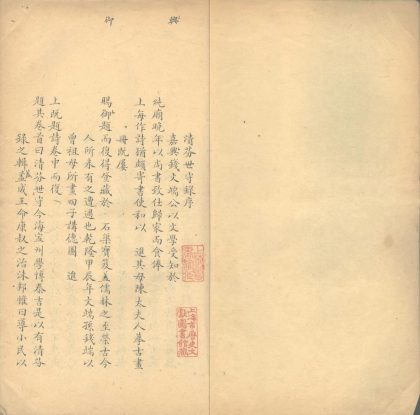 興
御
清芬世守錄序
嘉興錢文端公以文學受知於
純廟晚年以尚書致仕歸家而食俸
上每作詩猶寄書使和以 進其母陳太夫人摹古畫
母既屢
賜御題而復得登藏於 石渠寶笈儒林之至榮古今
人所未有之遭遇也乾隆甲辰年文端孫錢端以
曾祖母所畫田子講德圖 進
上既題詩卷中而復
題其卷首曰清芬世守今海州學博泰吉是以有清芬
錄之輯蓋成王命康叔之治沬邦惟曰導小民以
上海市歷史文
獻圖書館藏